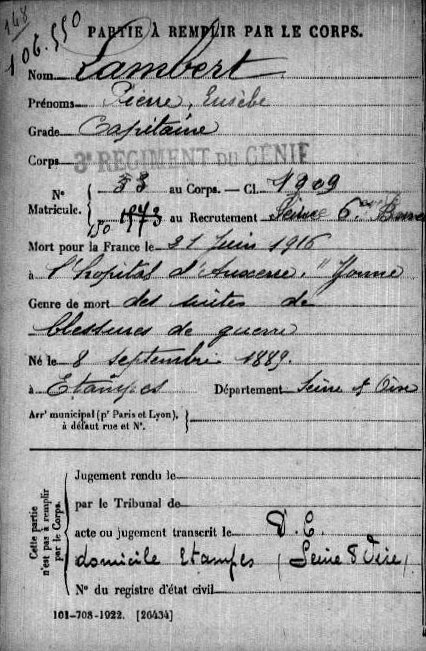 168
106.550
PARTIE À REMPLIR PAR LE CORPS.
Nom Lambert
Prénoms Pierre, Eusèbe
Grade Capitaine
Corps 3e RÉGIMENT DU GÉNIE
N° Matricule. { 33 au Corps. — Cl. 1909
150 1973 au Recrutement Seine 6e Bureau
Mort pour la France le 21 Juin 1916
à l'hopital d'Auxerre, "Yonne
Genre de mort des suites de
blessures de guerre
Né le 8 septembre 1889.
à Etampes Département Seine & Oise
Arrt municipal (pr Paris et Lyon), à défaut rue et N°.
Cette partie n'est pas à remplir par le Corps.
Jugement rendu le
par le Tribunal de
acte ou jugement transcrit le D. C.
domicile Etampes (Seine & Oise)
N° du registre d'état civil
101-708-1922. [26434]